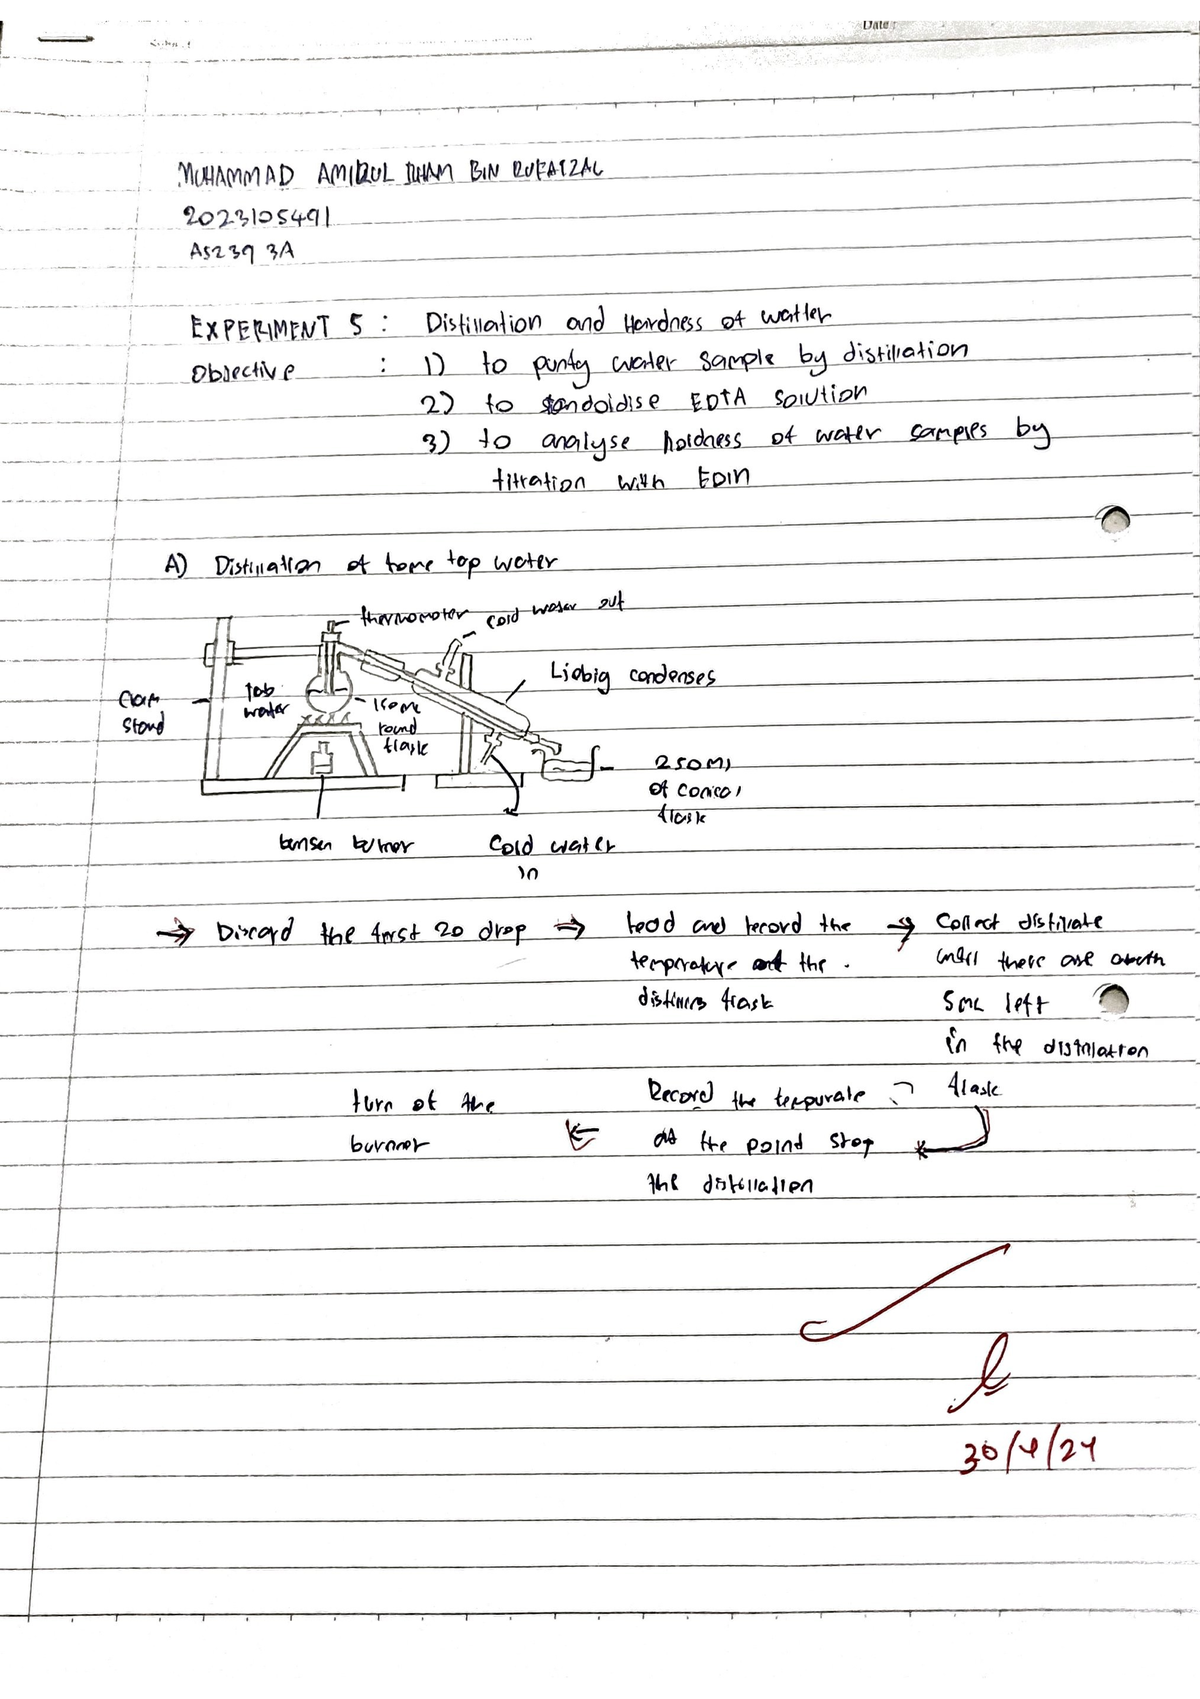 Date :
MUHAMMAD AMIRUL ILHAM BIN RUFAIZAL
2023105491
AS239 3A
EXPERIMENT 5 : Distillation and Hardness of watter
Objective : 1) to purify water sample by distillation
2) to standoidise EDTA solution
3) to analyse hordness of water samples by
titration with
A) Distillation of some top water
thermometer cold water out
Liebig condenses
Clam
stand
tab
water
round
flask
250ml
of conical
flask
bunsen burner
Cold water
in
→ Discard the first 20 drop ⇒ read and record the → Collect distillate
temperature the
until there are
flask
5mL left
in the distillation
flask
turn of the
burner
Record the tempurate
at the point stop
the distillation
30/4/24